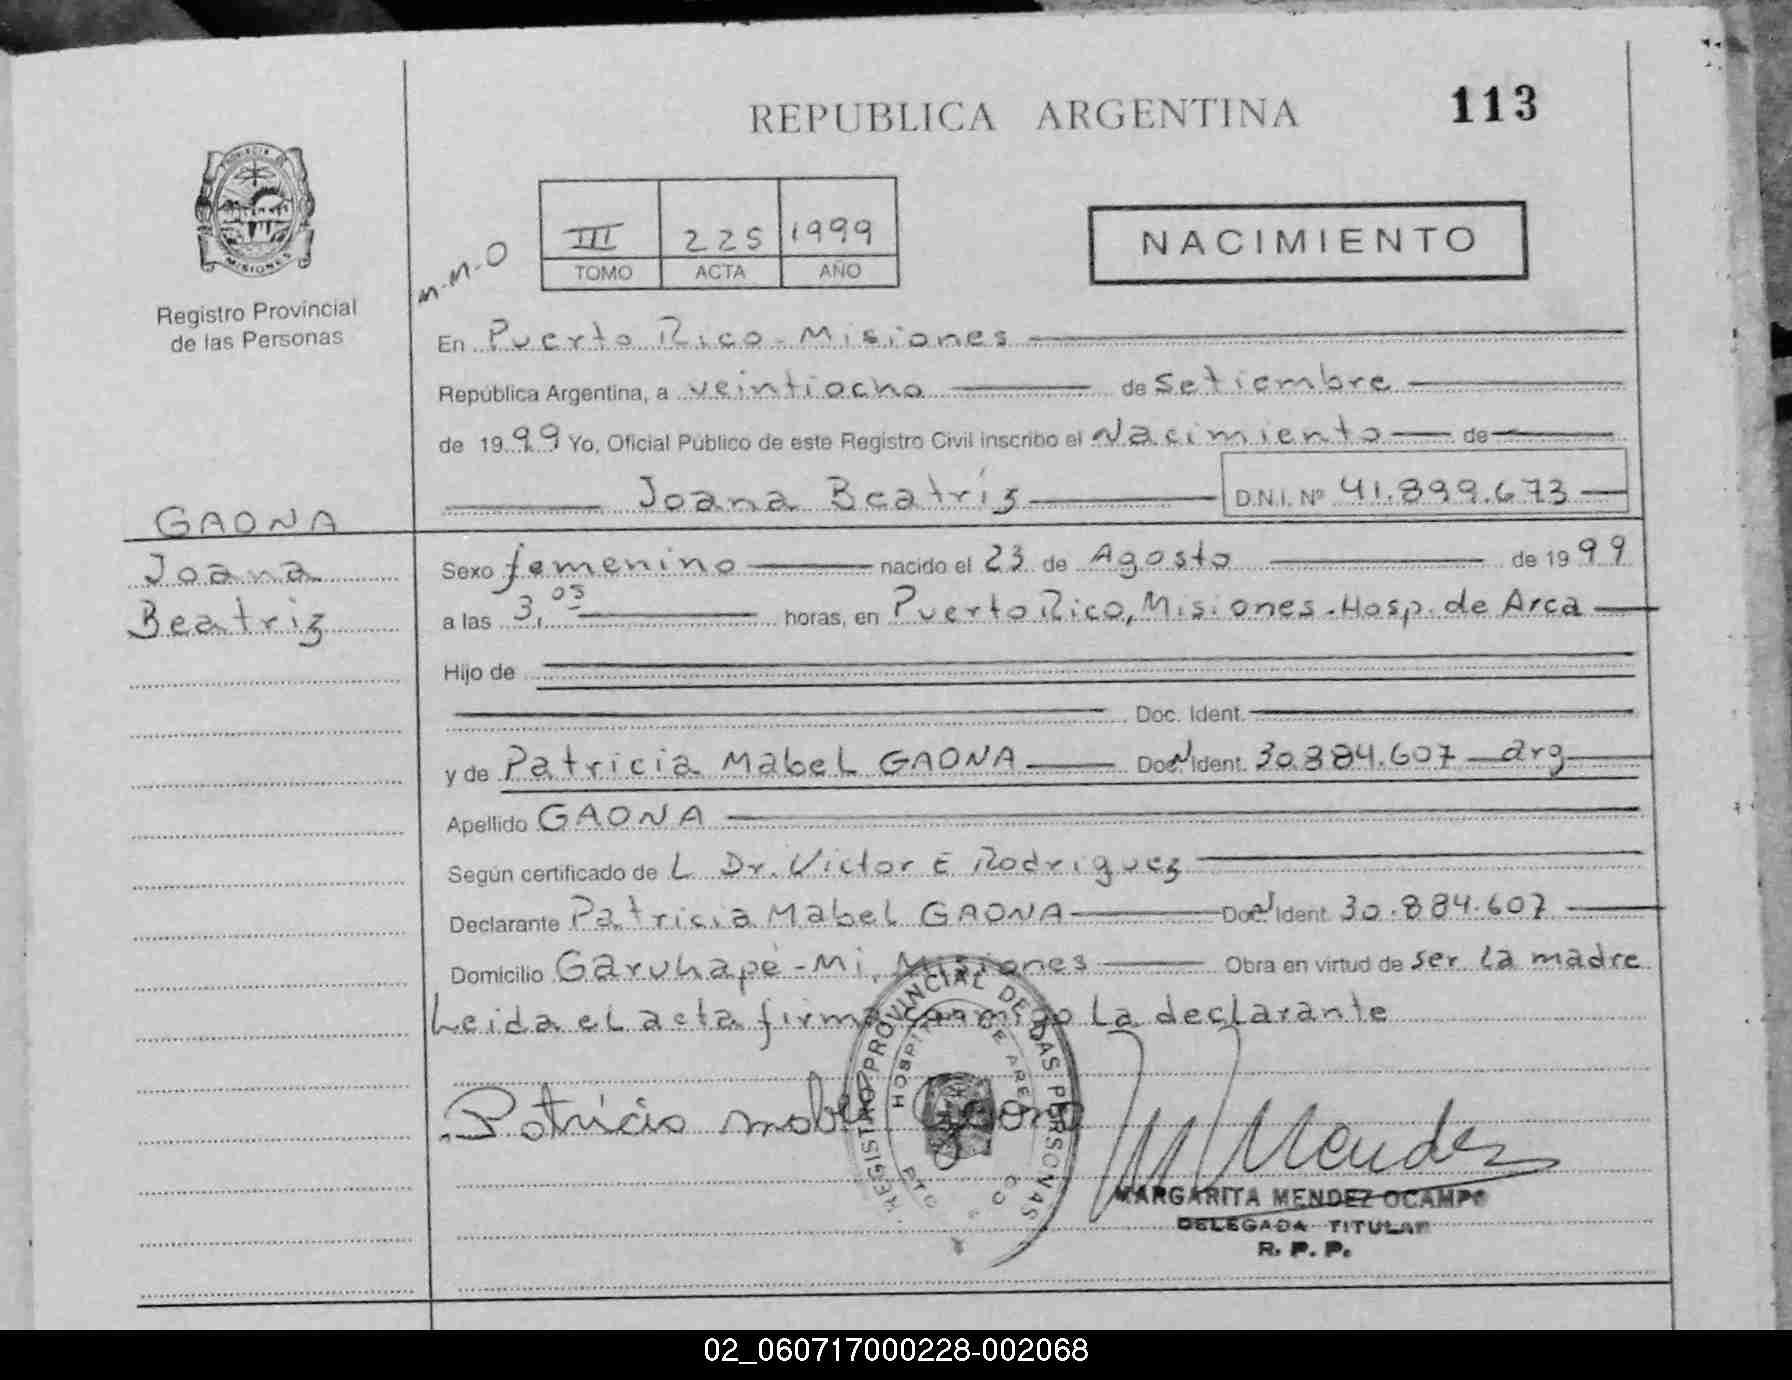 REPUBLICA ARGENTINA
113
PROVINCIA DE
MISIONES
Registro Provincial
de las Personas
M-M-O
III 225 1999
TOMO ACTA AÑO
NACIMIENTO
En Puerto Rico - Misiones
República Argentina, a veintiocho de Setiembre
de 1999 Yo, Oficial Público de este Registro Civil inscribo el Nacimiento de
Joana Beatríz D.N.I. Nº 41.899.673
GAONA
Joana
Beatriz
Sexo femenino nacido el 23 de Agosto de 1999
a las 3,05 horas, en Puerto Rico, Misiones.Hosp. de Area
Hijo de
Doc. Ident.
y de Patricia Mabel GAONA Doc. Ident. 30.884.607 arg
Apellido GAONA
Según certificado de L Dr. Victor E Rodriguez
Declarante Patricia Mabel GAONA Doc. Ident. 30.884.607
Domicilio Garuhapé - Mi, Misiones Obra en virtud de ser la madre
Leida el acta firma conmigo La declarante
Patricia Mabel Gaona
REGISTRO PROVINCIAL DE LAS PERSONAS
HOSPIT DE AREA
PTO CO
M Mendez
MARGARITA MENDEZ OCAMPO
DELEGADA TITULAR
R. P. P.
02_060717000228-002068